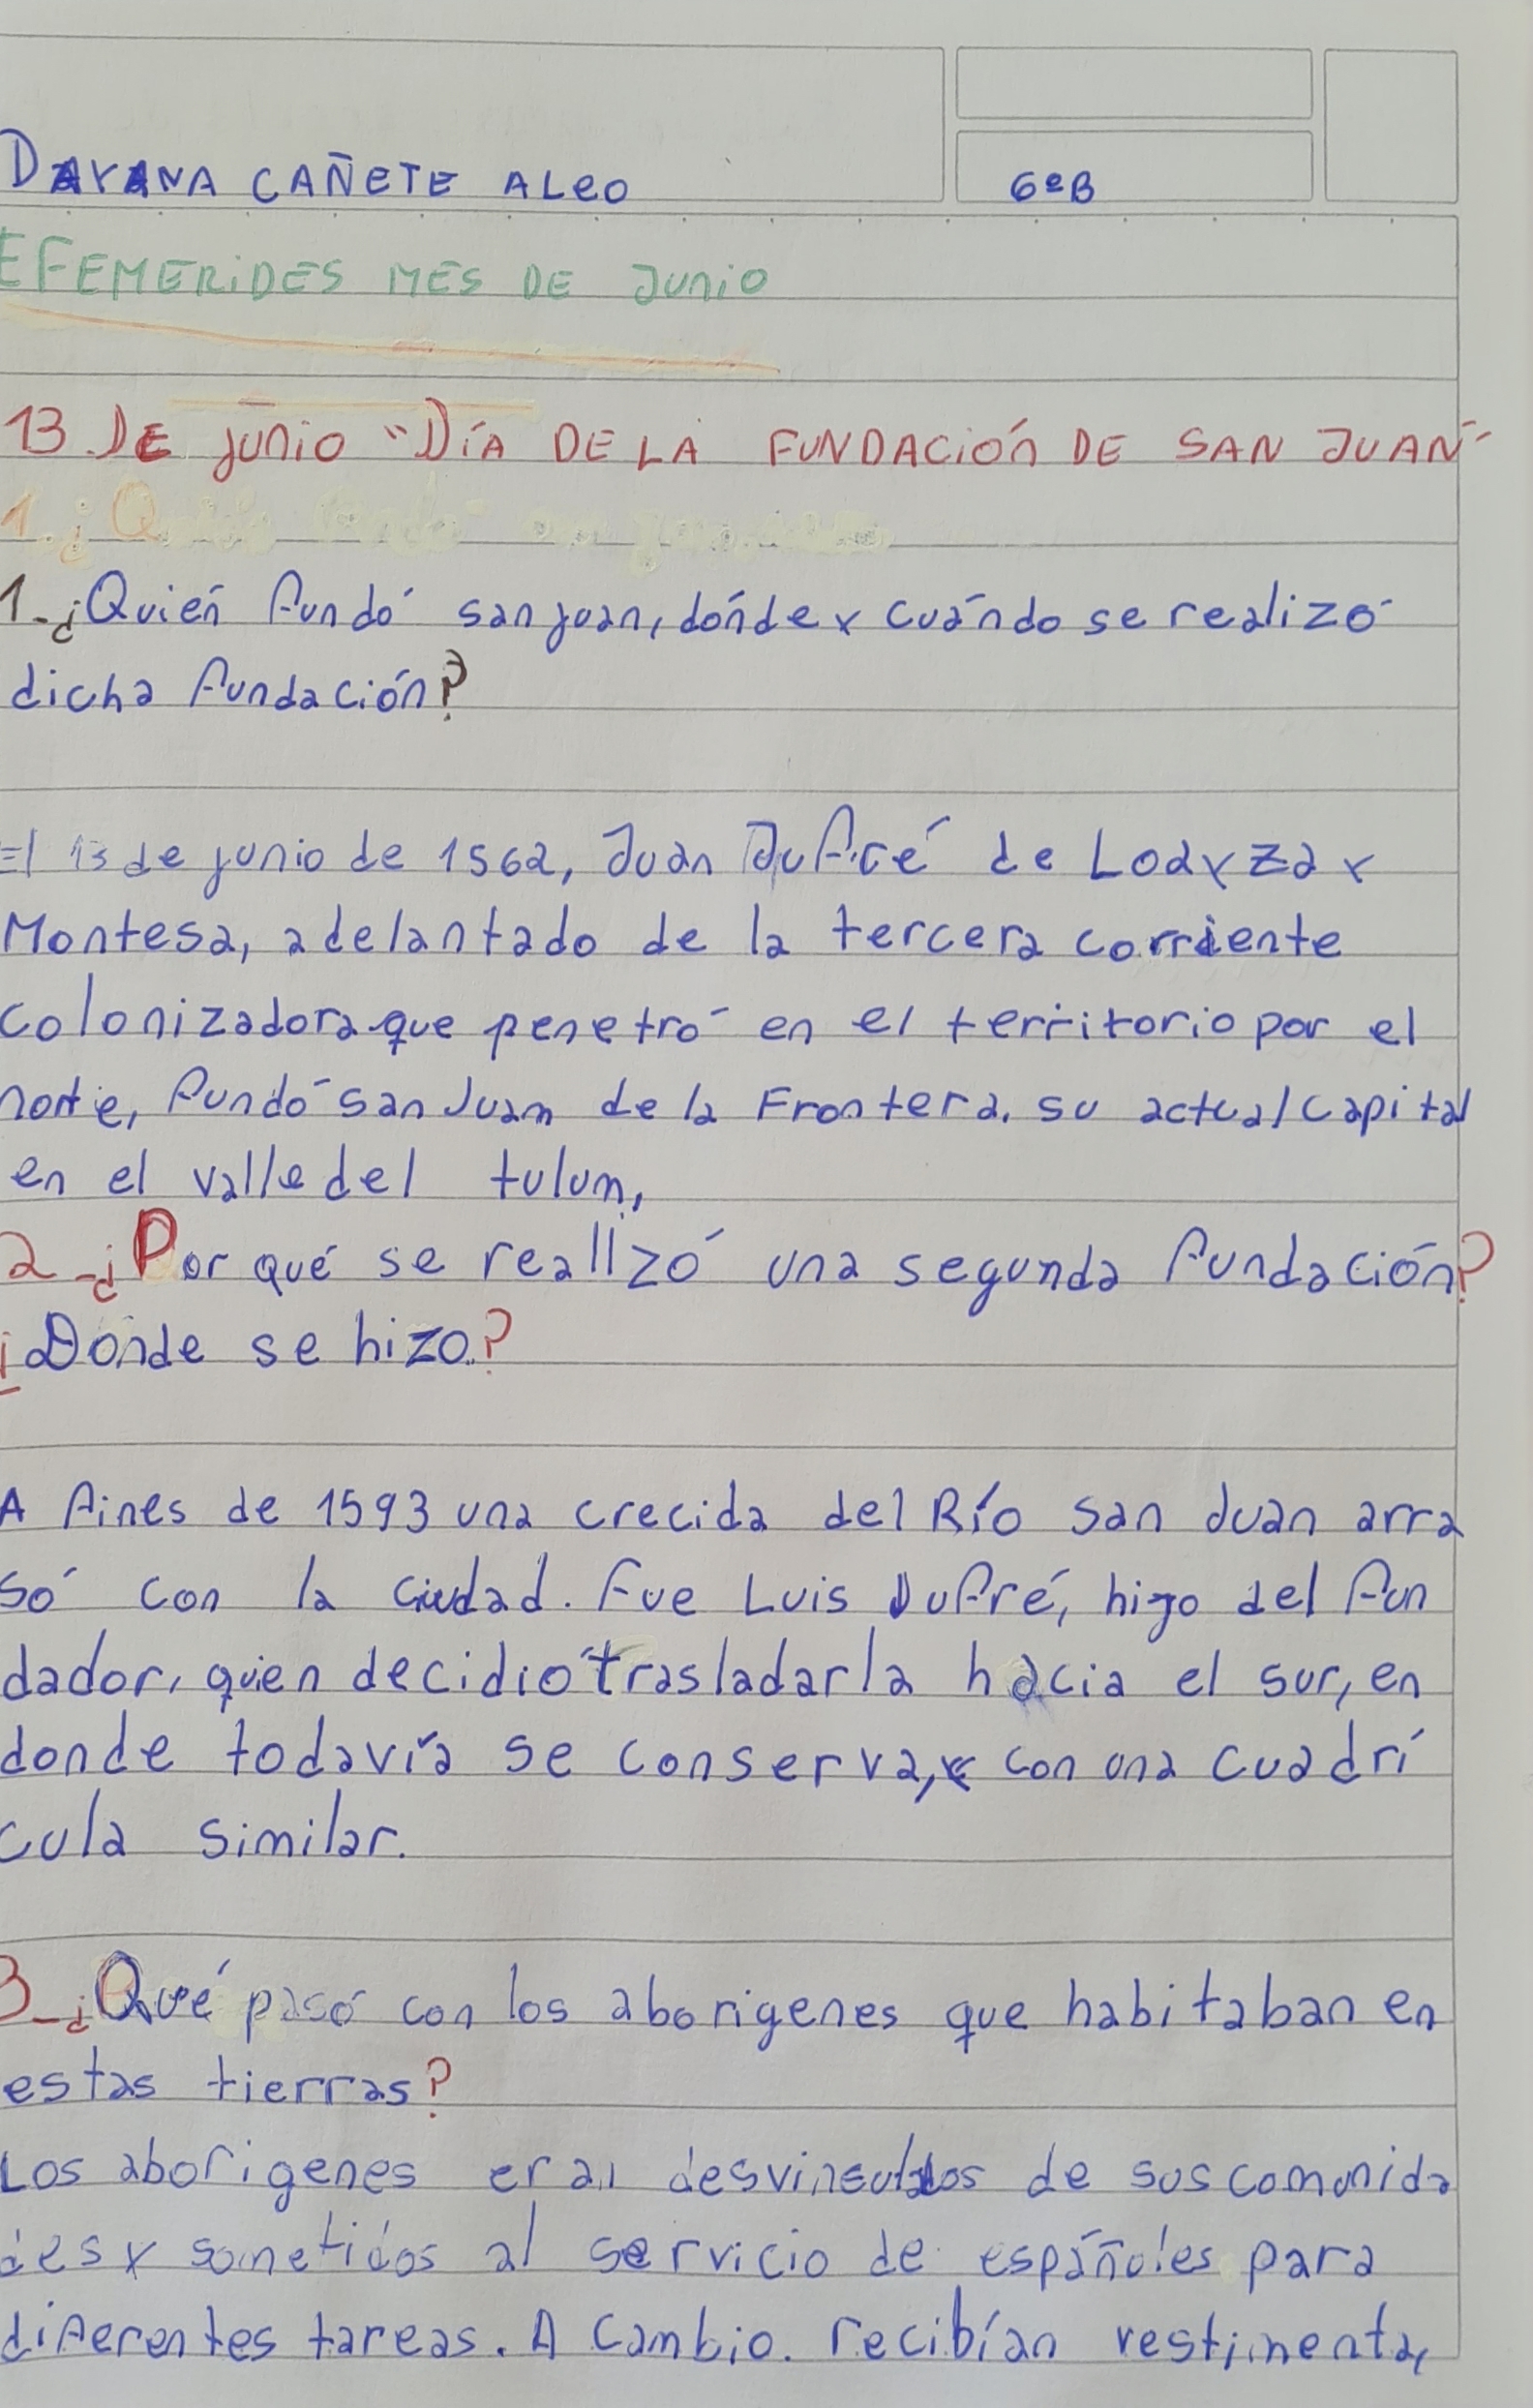 DAYANA CAÑETE ALEO
6ºB
EFEMERIDES MES DE JUNIO
13 DE junio "DÍA DE LA FUNDACIÓN DE SAN JUAN"
1-¿Quién fundó san juan, dónde y cuándo se realizó
dicha fundación?
El 13 de junio de 1562, Juan Jufré de Loayza y
Montesa, adelantado de la tercera corriente
colonizadora que penetró en el territorio por el
norte, fundó San Juan de la Frontera. su actual capital
en el valle del tulum,
2-¿Por qué se realizó una segunda fundación?
¿Dónde se hizo?
A fines de 1593 una crecida del Río San Juan arra
só con la ciudad. Fue Luis Jufré, hijo del fun
dador, quien decidió trasladarla hacia el sur, en
donde todavía se conserva, y con una cuadrí
cula similar.
3-¿Qué pasó con los aborigenes que habitaban en
estas tierras?
Los aborigenes eran desvinculados de sus comunida
des y sometidos al servicio de españoles para
diferentes tareas. A cambio. recibían vestimenta,